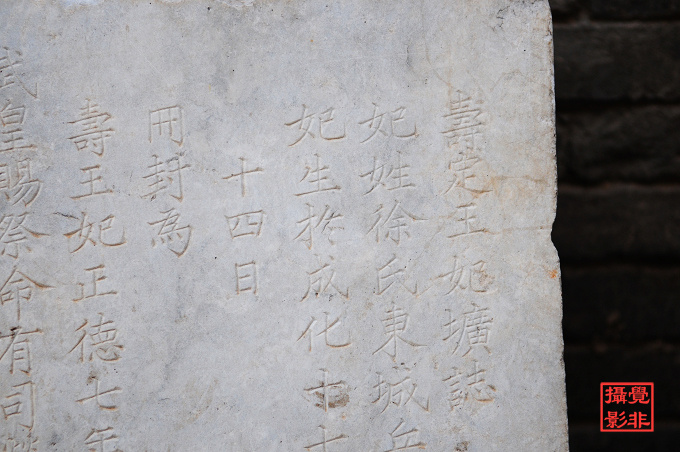 壽定王妃壙誌
妃姓徐氏東城兵
妃生於成化十七
十四日
冊封為
壽王妃正德七年
武皇賜祭命有司
覺非
攝影